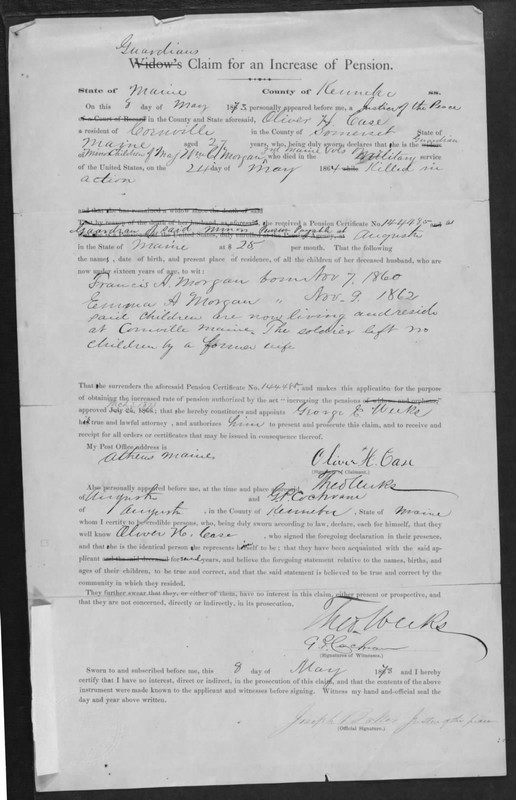 Guardians
Widow's Claim for an Increase of Pension.
State of Maine County of Kennebec ss.
On this 8 day of May 1873, personally appeared before me, a Justice of the Peace
of a Court of Record in the County and State aforesaid, Oliver H. Case
a resident of Cornville in the County of Somerset State of
Maine aged years, who, being duly sworn, declares that she is the widow Guardian
of Minor Children of Maj Wm Morgan 3rd Maine Vols who died in the Military service
of the United States, on the 24 day of May 1864 while Killed in
action
and that she has remained a widow since the death of said
That by reason of the death of her husband, as aforesaid, she received a Pension Certificate No. 144490 as
Guardian of said minor Pension Payable at Augusta
in the State of Maine at $ 28 per month. That the following
the names, date of birth, and present place of residence, of all the children of her deceased husband, who are
now under sixteen years of age, to wit:
Francis A. Morgan born Nov 7, 1860
Emma A Morgan " Nov. 9, 1862
said children are now living and reside
at Cornville Maine. The soldier left no
children by a former wife
That she surrenders the aforesaid Pension Certificate No. 144490, and makes this application for the purpose
of obtaining the increased rate of pension authorized by the act increasing the pensions of widows and orphans,
approved July 25, 1866; that she hereby constitutes and appoints George E Weeks
his true and lawful attorney, and authorizes him to present and prosecute this claim, and to receive and
receipt for all orders or certificates that may be issued in consequence thereof.
My Post Office address is
Athens Maine
Oliver H. Case
(Signature of Claimant.)
Also personally appeared before me, at the time and place aforesaid, Theo Weeks
of Augusta and G.P. Cochran
of Augusta, in the County of Kennebec, State of Maine
whom I certify to be credible persons, who, being duly sworn according to law, declare, each for himself, that they
well know Oliver H. Case, who signed the foregoing declaration in their presence,
and that she is the identical person she represents himself to be; that they have been acquainted with the said ap-
plicant and the said deceased for several years, and believe the foregoing statement relative to the names, births, and
ages of their children, to be true and correct, and that the said statement is believed to be true and correct by the
community in which they resided.
They further swear that they, or either of them, have no interest in this claim, either present or prospective, and
that they are not concerned, directly or indirectly, in its prosecution.
Theo. Weeks
G.P. Cochran
(Signatures of Witnesses.)
Sworn to and subscribed before me, this 8 day of May 1873 and I hereby
certify that I have no interest, direct or indirect, in the prosecution of this claim, and that the contents of the above
instrument were made known to the applicant and witnesses before signing. Witness my hand and official seal the
day and year above written.
Joseph Baker Justice of the peace
(Official Signature.)